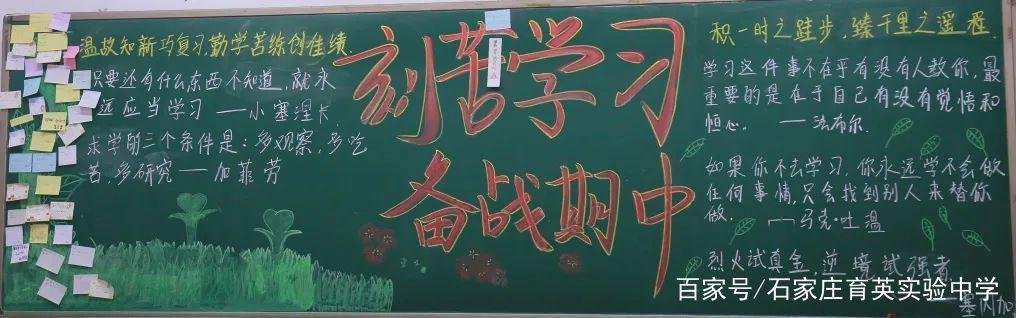 温故知新巧复习,勤学苦练创佳绩.
只要还有什么东西不知道,就永
远应当学习——小塞涅卡.
求学的三个条件是:多观察,多吃
苦,多研究——加菲劳
刻苦学习
备战期中
积一时之跬步,臻千里之遥程.
学习这件事不在乎有没有人教你,最
重要的是在于自己有没有觉悟和
恒心. ——法布尔.
如果你不去学习,你永远学不会做
任何事情,只会找到别人来替你
做. ——马克·吐温
烈火试真金,逆境试强者
——塞内加
百家号/石家庄育英实验中学